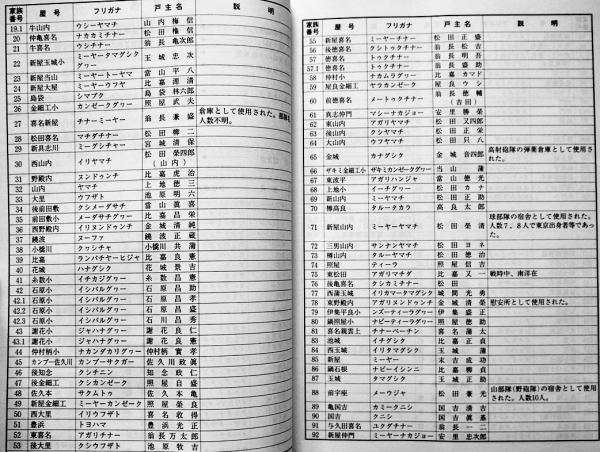 家族番号 屋号 フリガナ 戸主名 説明
19.1 牛山内 ウシーヤマチ 山内梅信
20 仲亀喜名 ナカカミチナー 松田権信
21 牛喜名 ウシチナー 翁長亀次郎
22 新屋玉城小 ミーヤータマグシクグヮー 玉城忠次
23 新屋当山 ミーヤートーヤマ 當山平八
24 新屋大屋 ミーヤーウフヤ 比嘉源清
25 島袋 シマブク 島袋林六郎
26 金細工小 カンゼークグヮー 照屋武夫
27 喜名新屋 チナーミーヤー 翁長兼盛 倉庫として使用された。 人数不明。
28 松田喜名 マチダチナー 松田榔二
29 新具志川 ミーグシチャー 宮城清保
30 西山内 イリヤマチ 松田榮四郎(山内)
31 野殿内 ヌンドゥンチ 比嘉虎治
32 山内 ヤマチ 上地徳三
33 大里 ウフザト 池原明六
34 後前田敷 クシメーダサチ 當山眞喜
35 前田敷小 メーダサチグヮー 比嘉昌榮
36 西野殿内 イリヌンドゥンチ 金城清純
37 饒波 ヌーファ 饒波正蔵
38 小橋川 クヮシチャ 小橋川共蒲
39 比嘉 ランバチヤーヒジャ 比嘉良憲
40 花城 ハナグシク 花城景吉
41 糸数小 イチカジグヮー 比嘉昌憲
42 石原小 イシバルグヮー 石原昌助
42.1 石原小 イシバルグヮー 石原昌徳
42.2 石原小 イシバルグヮー 石原昌盛
42.3 石原小 イシバルグヮー 石川昌秀
43 謝花小 ジャハナグヮー 謝花良仁
43.1 謝花小 ジャハナグヮー 謝花良憲
44 仲村柄小 ナカンダカリグヮー 仲村柄實孝
45 カンプー佐久川 カンプーサクガー 佐久川政眞
46 後知念 クシチニン 知念政仁
47 後金細工 クシカンゼーク 照屋自盛
48 佐久本 サクムトゥ 佐久本亀
49 新屋金細工 ミーヤーカンゼーク 照屋榮良
50 西大里 イリウフザト 喜名收得
51 豊浜 トヨハマ 豊浜光正
52 東喜名 アガリチナー 翁長万太郎
53 後大里 クシウフザト 池原牧吉
家族番号 屋号 フリガナ 戸主名 説明
55 新屋喜名 ミーヤーチナー 松田正盛
56 後徳喜名 クシトゥクチナー 翁長松吉
57 徳喜名 トゥクチナー 翁長明吾
57.1 徳喜名 トゥクチナー 翁長盛助
58 仲村小 ナカムラグヮー 比嘉カマド
59 屋良金細工 ヤラカンゼーク 屋良ウシ
60 前徳喜名 メートゥクチナー 翁長徳輔(吉田)
61 真志仲門 マシーナカジョー 安里勝榮
62 東山内 アガリヤマチ 松田又四郎
63 後山内 クシヤマチ 松田正栄
64 大山内 ウフヤマチ 松田只八
65 金城 カナグシク 金城音四郎 高射砲隊の弾薬倉庫として使用された。
66 ザキミ金細工小 ザキミカンゼークグヮー 当山蒲
67 東波平 アガリハンジャ 富山徳光
68 上地小 イーチグヮー 松田カナ
69 新山内 ミーヤマチ 松田正助
70 樽高良 タルータカラ 高良太郎
71 新屋山内 ミーヤーヤマチ 松田榮清 球部隊の宿舎として使用された。人数7、8人で東京出身者等であった。
72 三男山内 サンナンヤマチ 松田ヨネ
73 樽山内 タルーヤマチ 松田徳治
74 照屋 ティーラ 照屋信吉
75 東松田 アガリマチダ 比嘉又一 戦時中、南洋在
76 後亀喜名 クシカミチナー 松田
77 西蒲玉城 イリカマータマグシク 城間光勇
78 東野殿内 アガリヌンドゥンチ 金城清榮 慰安所として使用された。
79 伊集平良小 ンズーティーラグヮー 伊集盛正
80 鍋照屋小 ナビーティーラグヮー 照屋徳助
81 喜名親雲上 チナーペーチン 喜名蒲太
83 池城 イチグシク 比嘉正貞
84 西玉城 イリタマグシク 玉城蒲
85 新屋 ミーヤー 末吉成功
86 鍋石根 ナビーイシニー 比嘉柳貞
87 玉城 タマグシク 玉城正助
88 前宇座 メーウジャ 松田兼光 山部隊(野砲隊)の宿舎として使用された。人数10人。
89 亀国吉 カミークニシ 国吉清吉
90 国吉 クニシ 国吉眞善
91 与久田喜名 ユクダチナー 翁長一二
92 新屋仲門 ミーヤーナカジョー 安里忠次郎